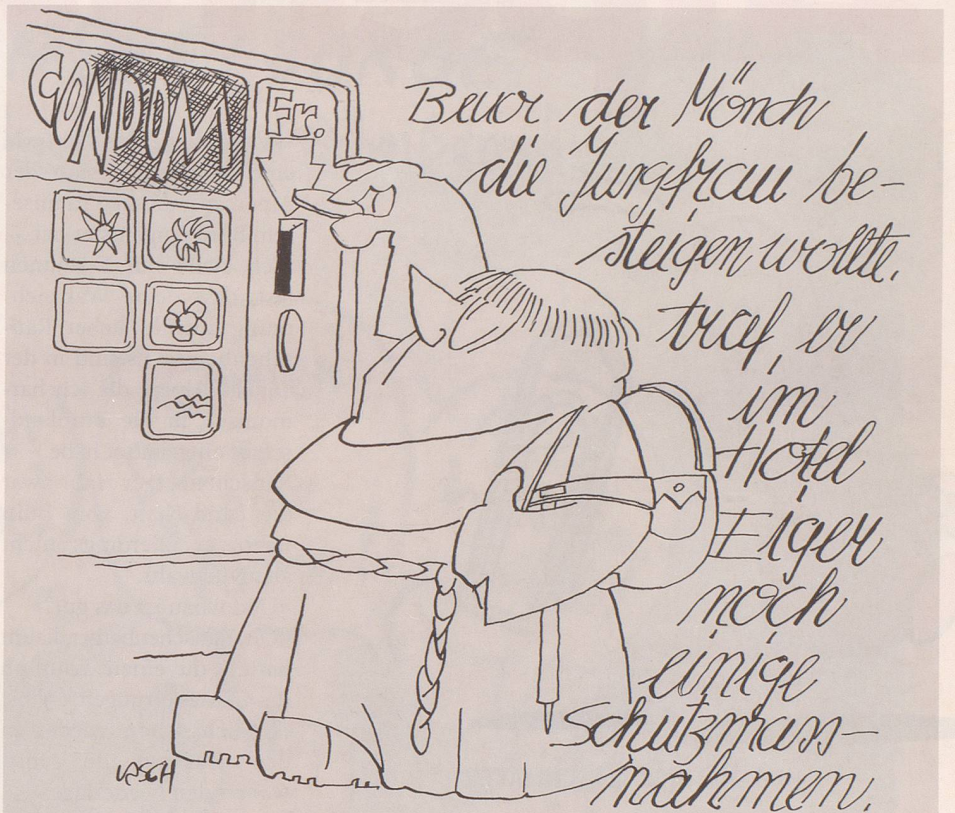 CONDOM
Fr.
Bevor der Mönch
die Jungfrau be-
steigen wollte,
traf er
im
Hotel
Eiger
noch
einige
Schutzmass-
nahmen.